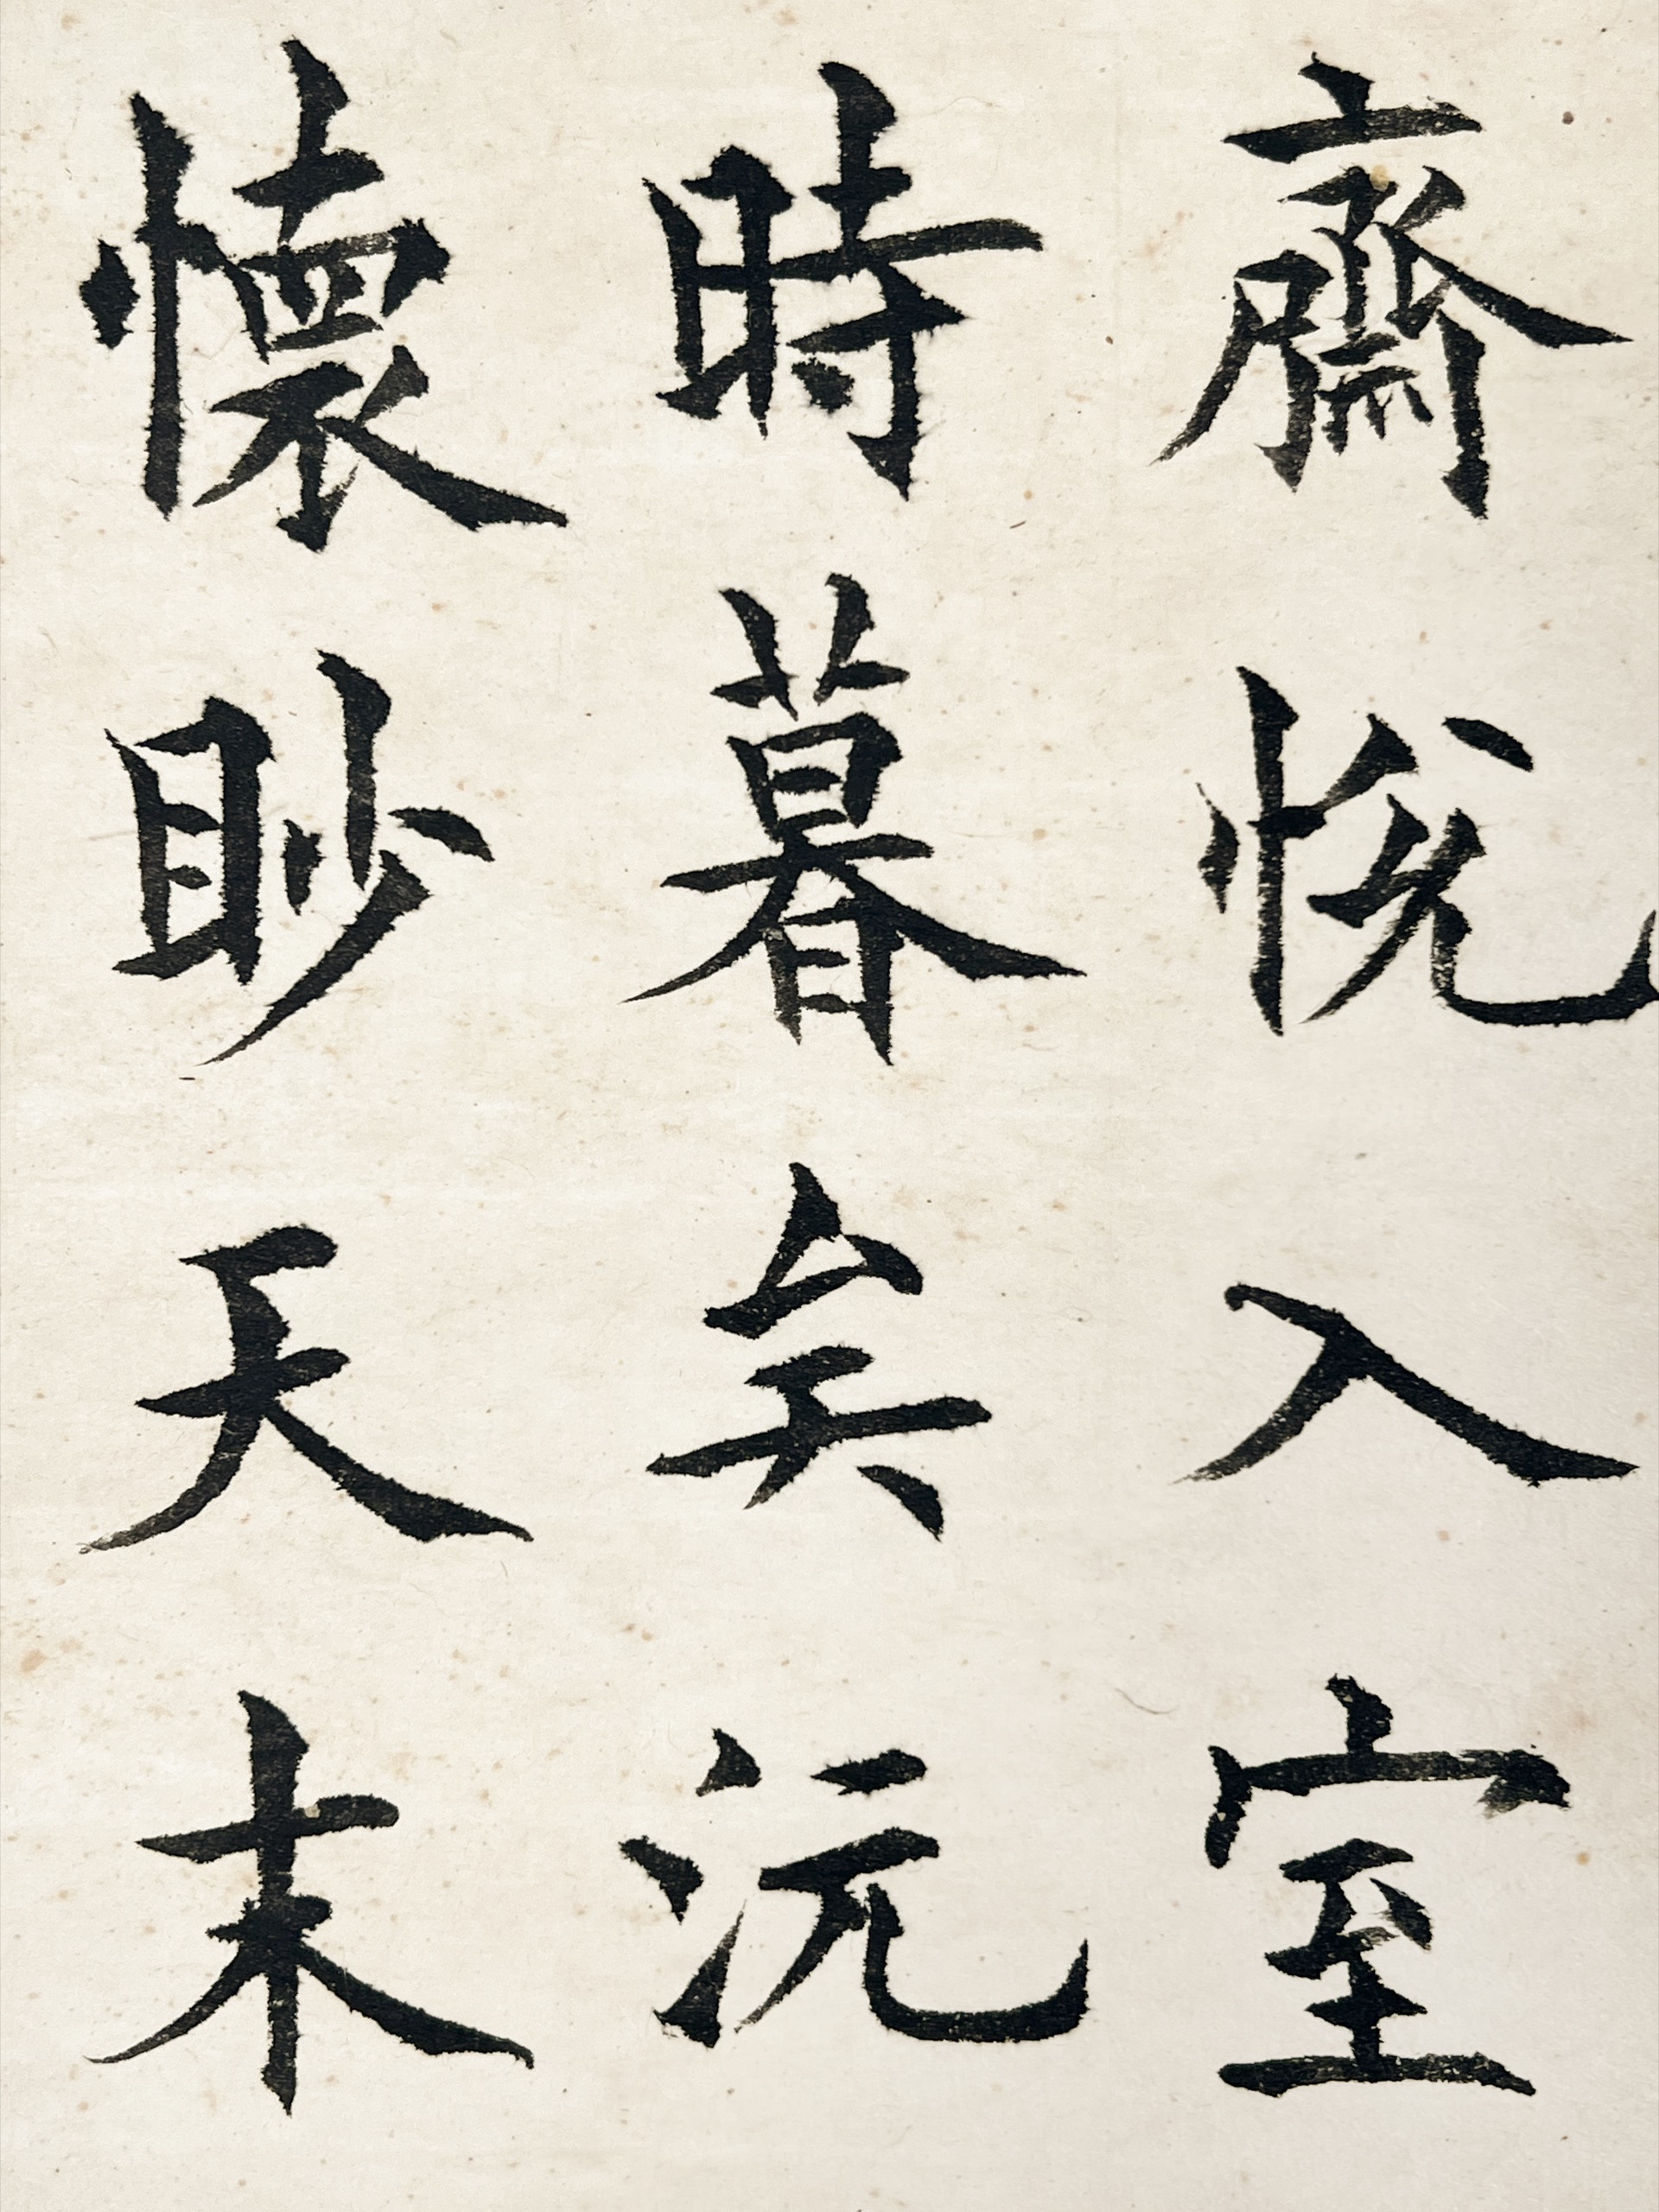 齋悅入室
時暮矣沅
懷眇天末